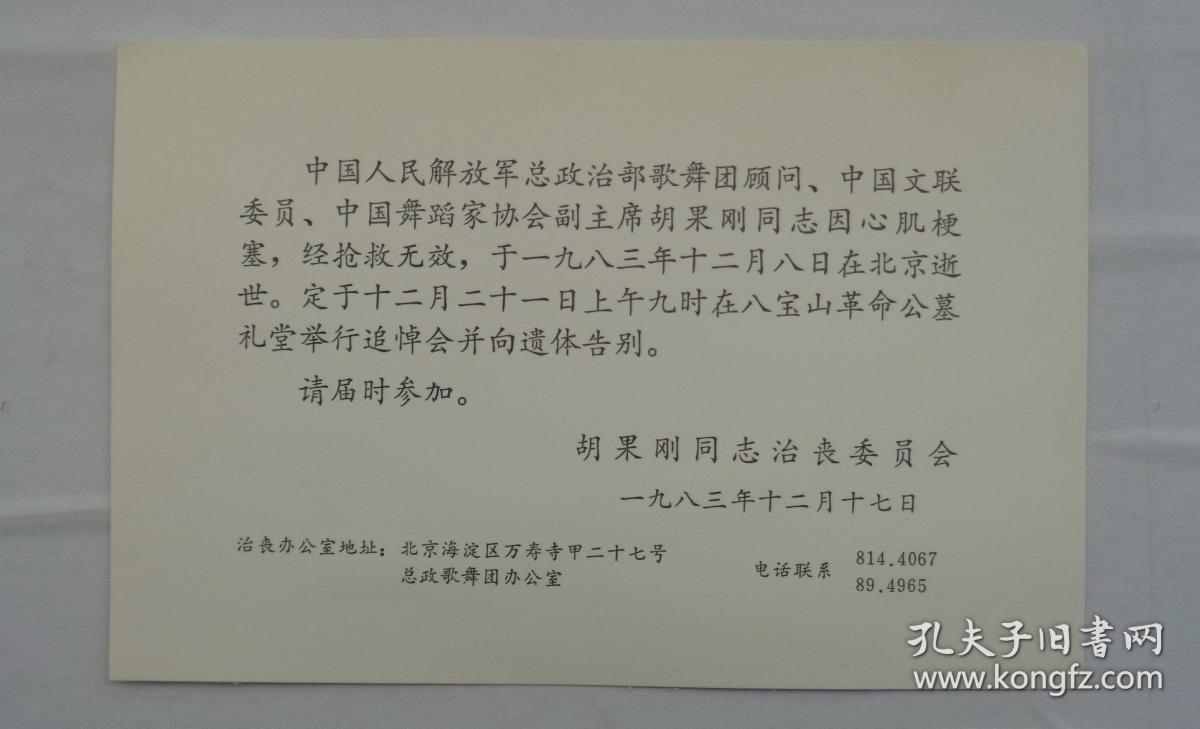 中国人民解放军总政治部歌舞团顾问、中国文联
委员、中国舞蹈家协会副主席胡果刚同志因心肌梗
塞，经抢救无效，于一九八三年十二月八日在北京逝
世。定于十二月二十一日上午九时在八宝山革命公墓
礼堂举行追悼会并向遗体告别。
请届时参加。
胡果刚同志治丧委员会
一九八三年十二月十七日
治丧办公室地址：北京海淀区万寿寺甲二十七号
总政歌舞团办公室
电话联系
814.4067
89.4965
孔夫子旧書网
www.kongfz.com